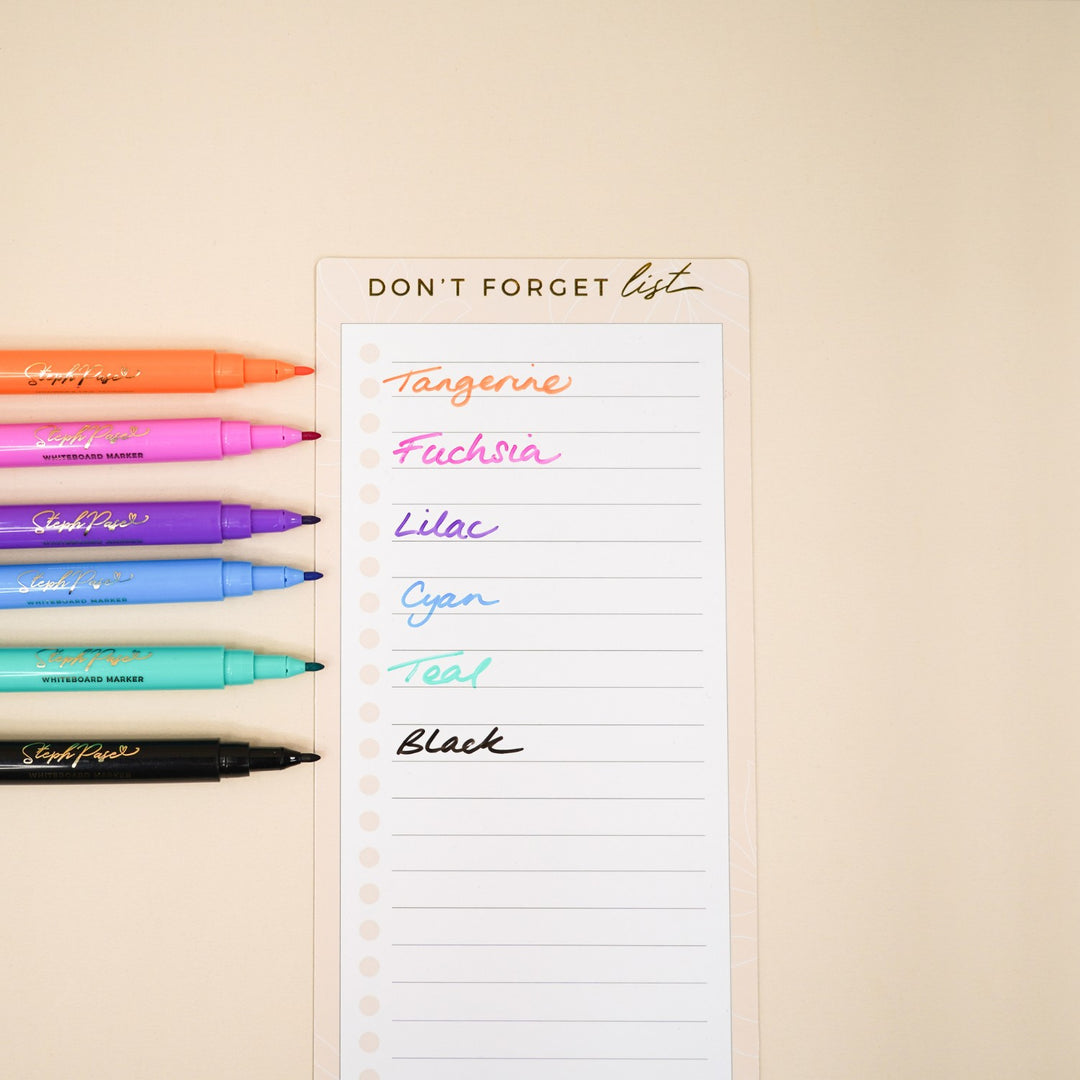 DON'T FORGET list
Steph Pase
Tangerine
Steph Pase
WHITEBOARD MARKER
Fuchsia
Steph Pase
Lilac
Steph Pase
WHITEBOARD MARKER
Cyan
Steph Pase
WHITEBOARD MARKER
Teal
Steph Pase
WHITEBOARD MARKER
Black